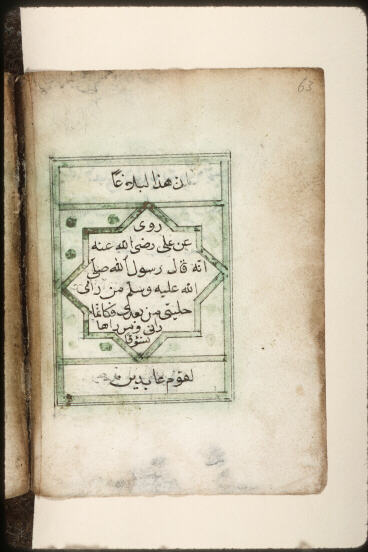 63
ان هذا لبلاغا
روى
عن على رضى الله عنه
انه قال رسول الله صلى
الله عليه وسلم من رانى
حليتى من بعدى فكانما
رانى ومن راها
شوقا
لقوم عابدين